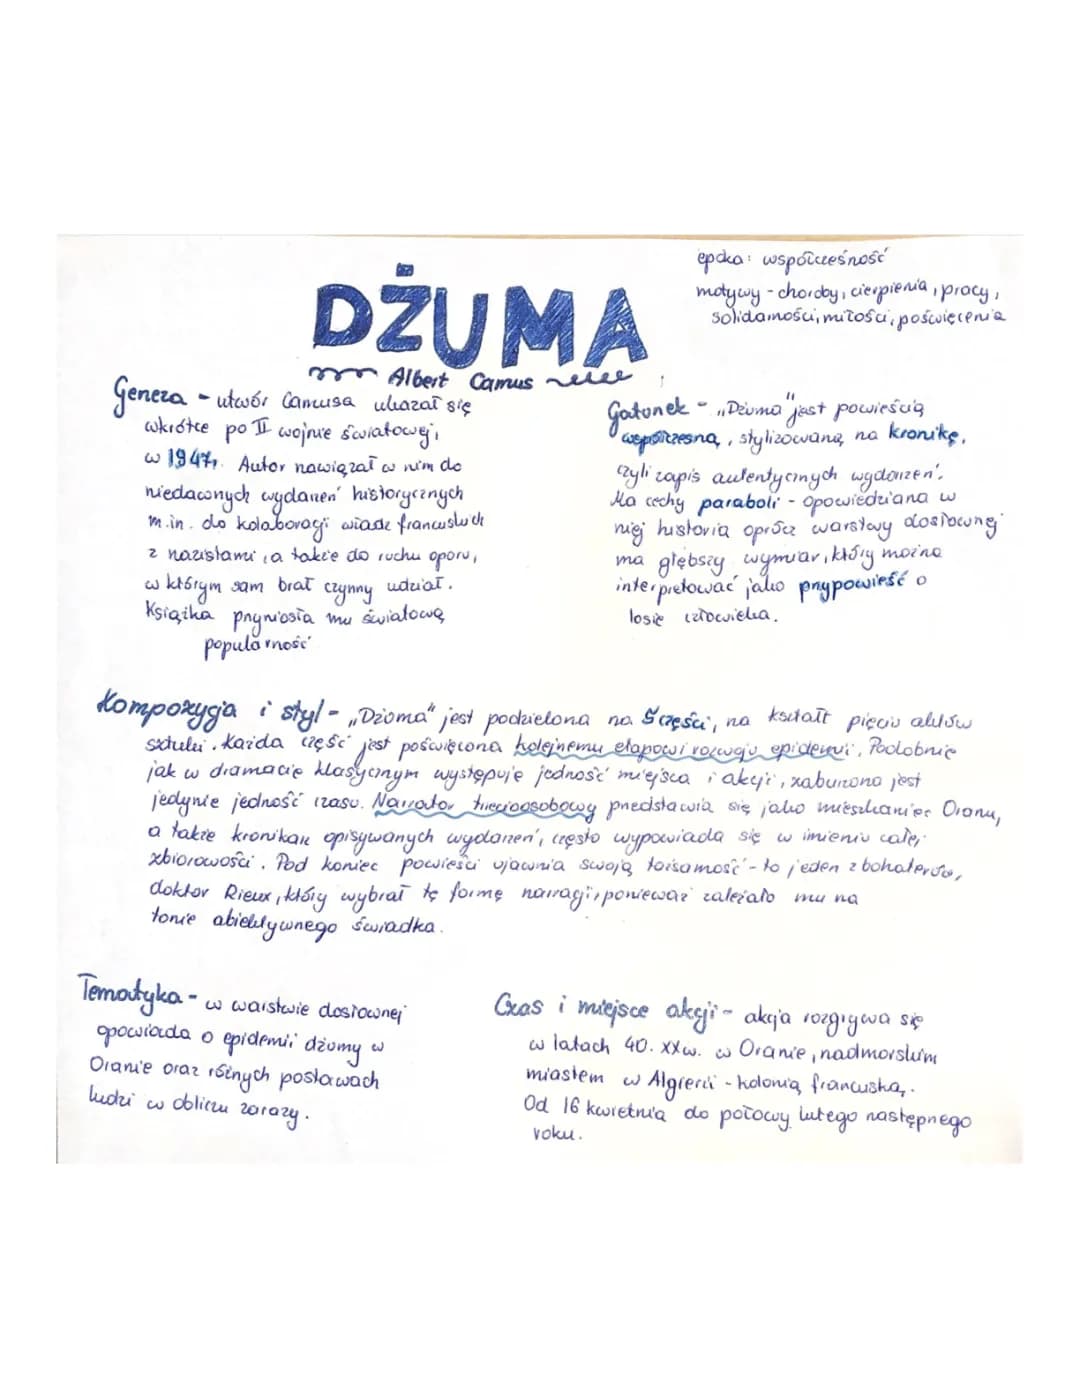 epoka: współczesność
motywy - choroby, cierpienia, pracy,
solidarności, miłości, poświęcenia
DŻUMA
Albert Camus
Geneza - utwór Camusa ukazał się
wkrótce po II wojnie światowej,
w 1947r. Autor nawiązał w nim do
niedawnych wydarzeń historycznych
m.in. do kolaboracji władz francuskich
z nazistami, a także do ruchu oporu,
w którym sam brał czynny udział.
Książka przyniosła mu światową
popularność
Gatunek - „Dżuma" jest powieścią
współczesną, stylizowaną na kronikę,
czyli zapis autentycznych wydarzeń.
Ma cechy paraboli - opowiedziana w
niej historia oprócz warstwy dosłownej
ma głębszy wymiar, który można
interpretować jako przypowieść o
losie człowieka.
Kompozycja i styl - „Dżuma" jest podzielona na 5 części, na kształt pięciu aktów
sztuki. Każda część jest poświęcona kolejnemu etapowi rozwoju epidemii. Podobnie
jak w dramacie klasycznym występuje jedność miejsca i akcji, zaburzona jest
jedynie jedność czasu. Narrator trzecioosobowy przedstawia się jako mieszkaniec Oranu,
a także kronikarz opisywanych wydarzeń, często wypowiada się w imieniu całej
zbiorowości. Pod koniec powieści ujawnia swoją tożsamość - to jeden z bohaterów,
doktor Rieux, który wybrał tę formę narracji, ponieważ zależało mu na
tonie obiektywnego świadka.
Tematyka - w warstwie dosłownej
opowiada o epidemii dżumy w
Oranie oraz różnych postawach
ludzi w obliczu zarazy.
Czas i miejsce akcji - akcja rozgrywa się
w latach 40. XXw. w Oranie, nadmorskim
miastem w Algierii - kolonią francuską.
Od 16 kwietnia do połowy lutego następnego
roku.